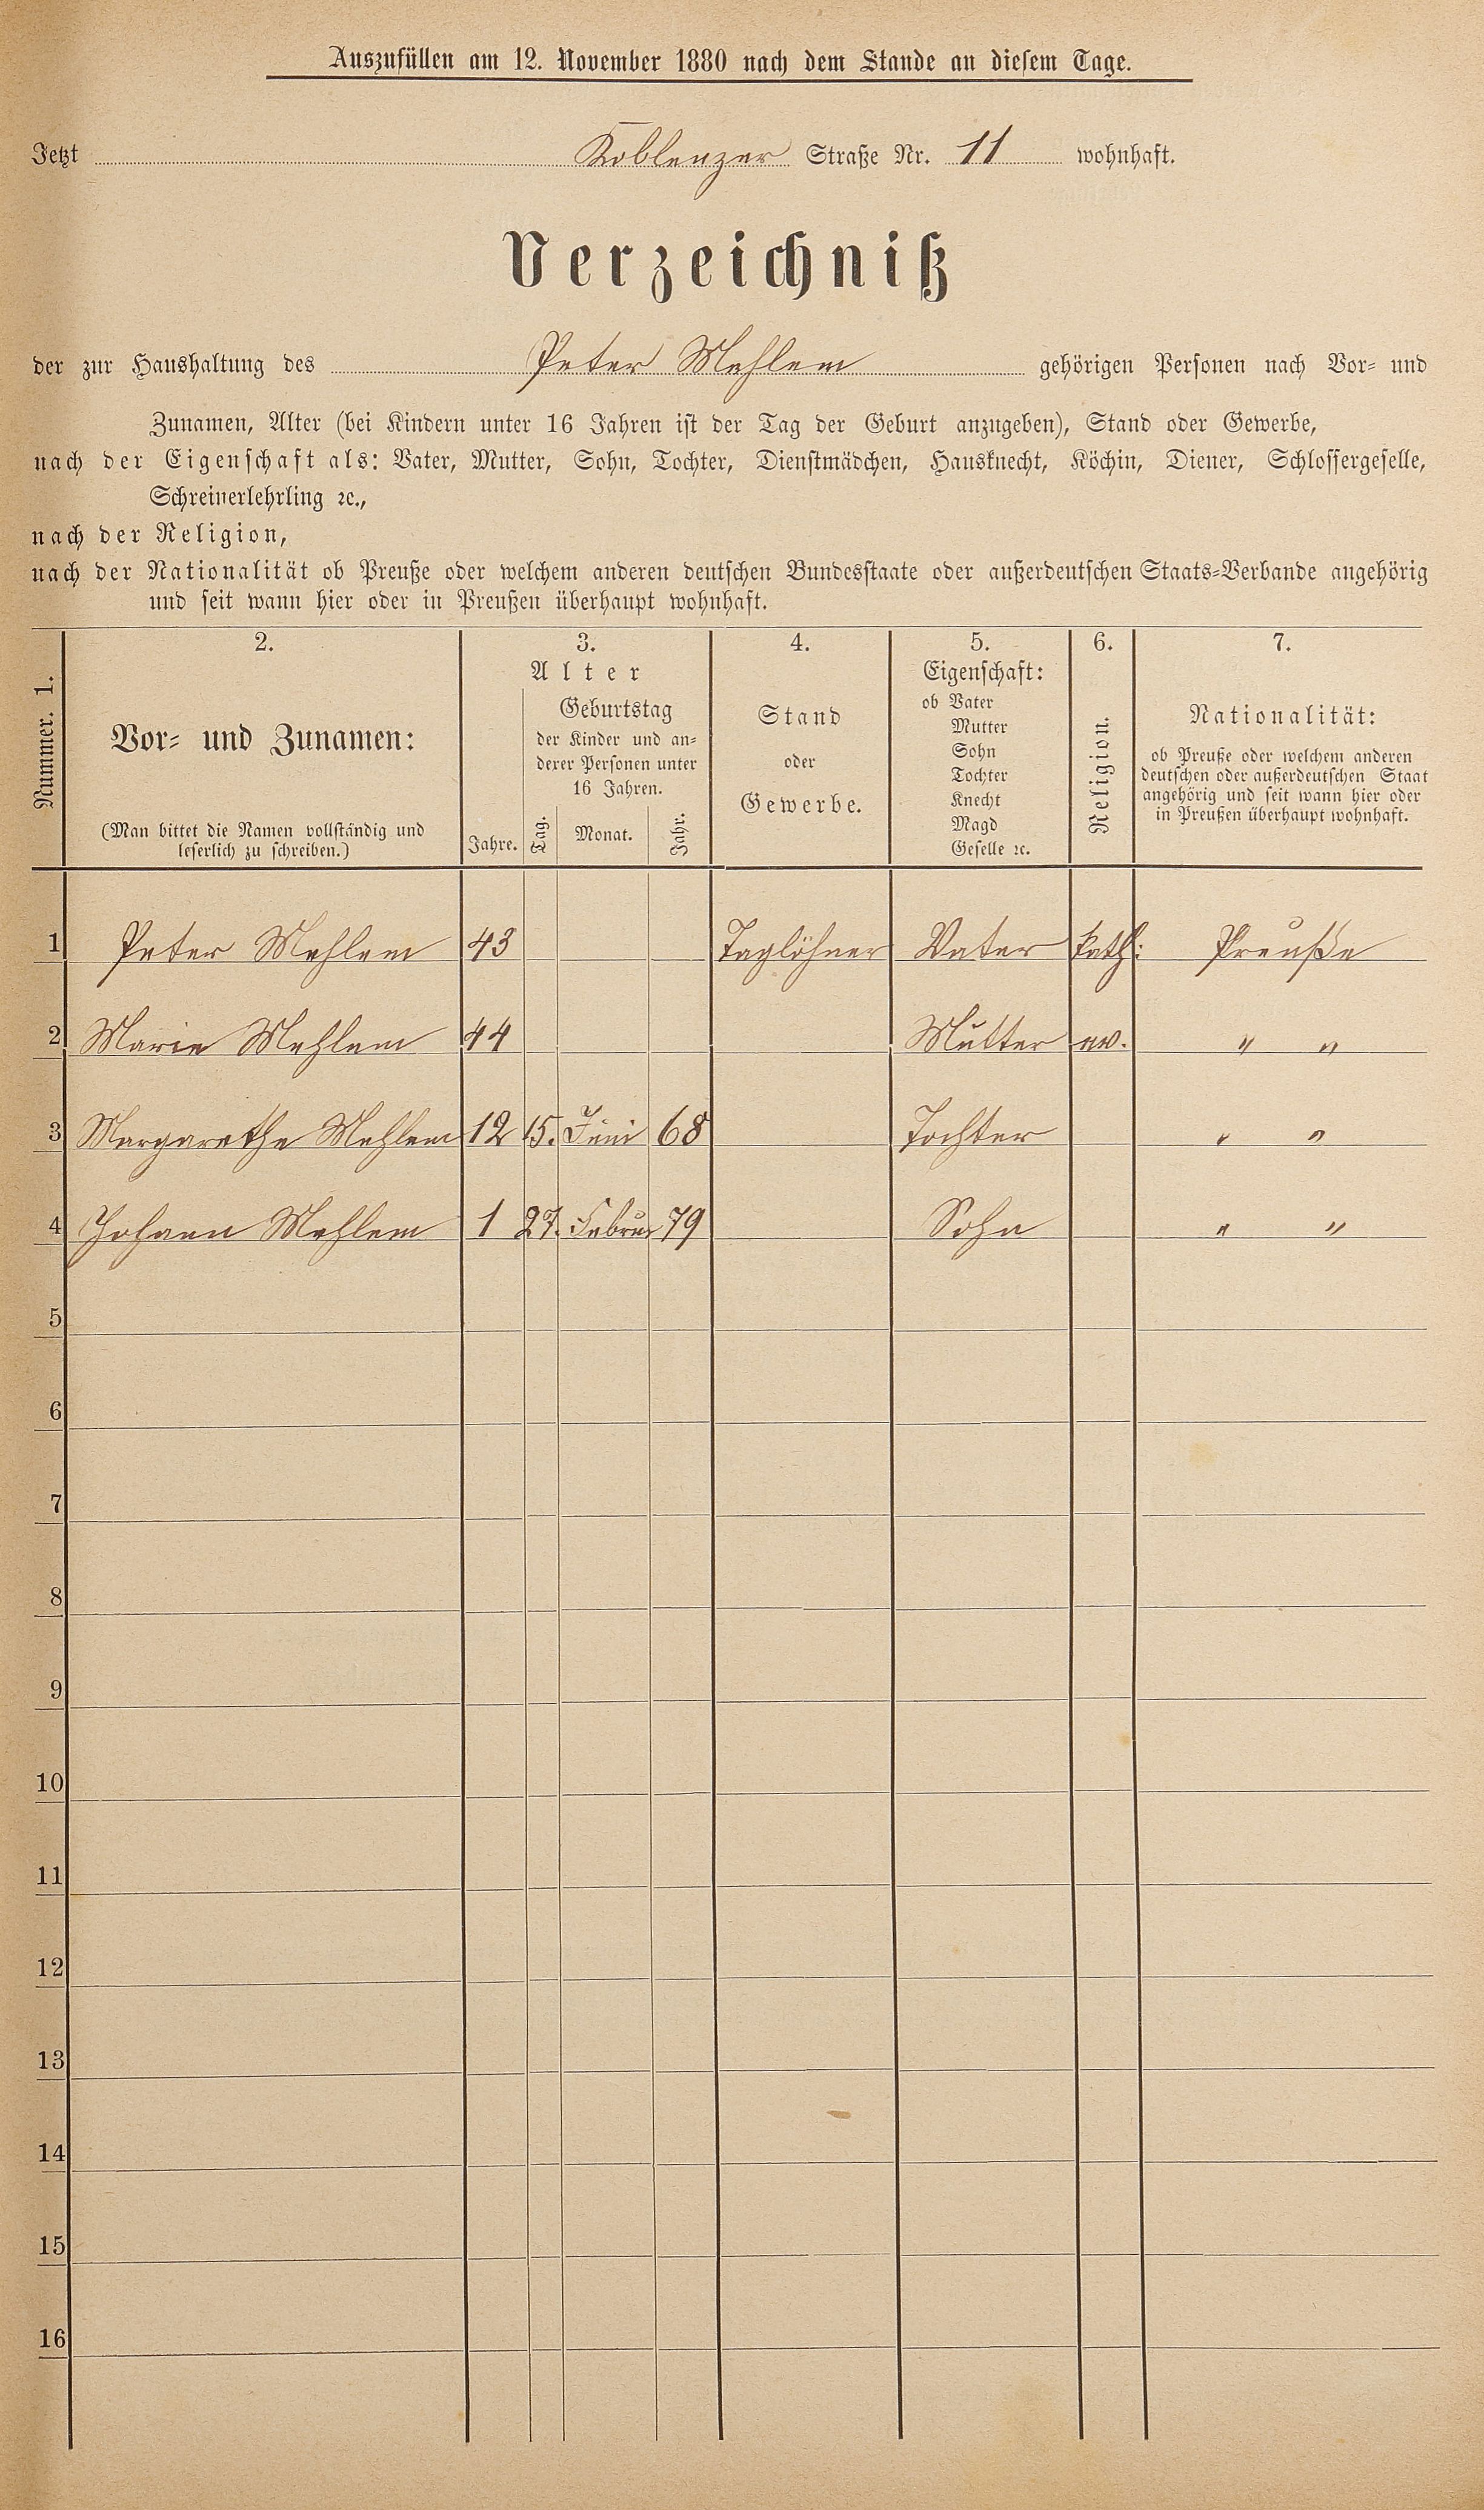 Auszufüllen am 12. November 1880 nach dem Stande an diesem Tage.
Jetzt Koblenzer Straße Nr. 11 wohnhaft.
Verzeichniß
der zur Haushaltung des Peter Mehlem gehörigen Personen nach Vor- und
Zunamen, Alter (bei Kindern unter 16 Jahren ist der Tag der Geburt anzugeben), Stand oder Gewerbe,
nach der Eigenschaft als: Vater, Mutter, Sohn, Tochter, Dienstmädchen, Hausknecht, Köchin, Diener, Schlossergeselle,
Schreinerlehrling ꝛc.,
nach der Religion,
nach der Nationalität ob Preuße oder welchem anderen deutschen Bundesstaate oder außerdeutschen Staats-Verbande angehörig
und seit wann hier oder in Preußen überhaupt wohnhaft.
Nummer. 1.
2.
Vor- und Zunamen:
(Man bittet die Namen vollständig und
leserlich zu schreiben.)
3.
Alter
Jahre.
Geburtstag
der Kinder und an-
derer Personen unter
16 Jahren.
Tag.
Monat.
Jahr.
4.
Stand
oder
Gewerbe.
5.
Eigenschaft:
ob Vater
Mutter
Sohn
Tochter
Knecht
Magd
Geselle ꝛc.
6.
Religion.
7.
Nationalität:
ob Preuße oder welchem anderen
deutschen oder außerdeutschen Staat
angehörig und seit wann hier oder
in Preußen überhaupt wohnhaft.
1 Peter Mehlem 43 Taglöhner Vater kath: Preuße
2 Marie Mehlem 44 Mutter ev. " "
3 Margarethe Mehlem 12 15. Juni 68 Tochter " "
4 Johann Mehlem 1 27. Februar 79 Sohn " "
5
6
7
8
9
10
11
12
13
14
15
16